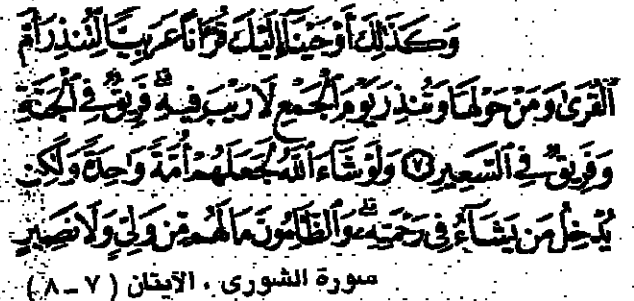 وَكَذَٰلِكَ أَوْحَيْنَآ إِلَيْكَ قُرْءَانًا عَرَبِيًّا لِّتُنذِرَ أُمَّ
ٱلْقُرَىٰ وَمَنْ حَوْلَهَا وَتُنذِرَ يَوْمَ ٱلْجَمْعِ لَا رَيْبَ فِيهِ ۚ فَرِيقٌ فِى ٱلْجَنَّةِ
وَفَرِيقٌ فِى ٱلسَّعِيرِ ٧ وَلَوْ شَآءَ ٱللَّهُ لَجَعَلَهُمْ أُمَّةً وَٰحِدَةً وَلَٰكِن
يُدْخِلُ مَن يَشَآءُ فِى رَحْمَتِهِۦ ۚ وَٱلظَّٰلِمُونَ مَا لَهُم مِّن وَلِىٍّ وَلَا نَصِيرٍ
سورة الشورى . الآيتان ( ٧ ـ ٨ )